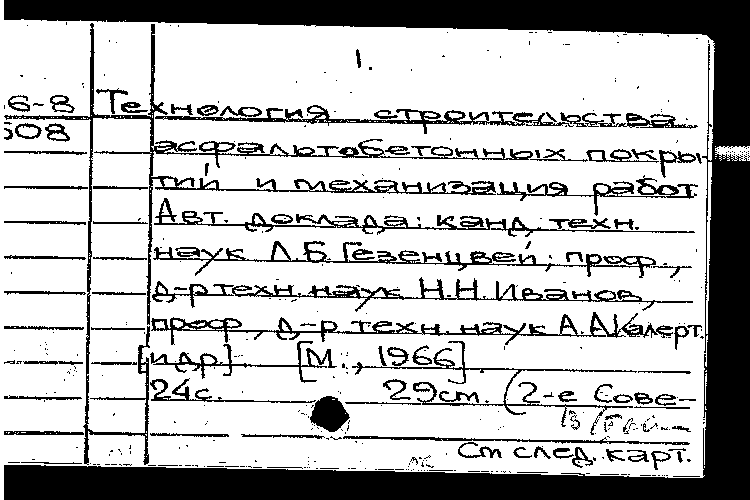 1.
6-8 Технология строительства
508
асфальтобетонных покры-
тий и механизация работ
Авт. доклада: канд. техн.
наук Л.Б. Гезенцвей; проф.,
д-р техн. наук Н.Н. Иванов,
проф., д-р техн. наук А.А. Калерт.
[и др]. [М., 1966].
24с. 29см. (2-е Сове-
См след. карт.